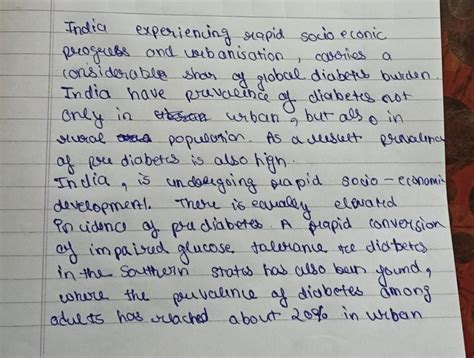 India experiencing rapid socio econic
progress and urbanisation, carries a
considerable shar of global diabetes burden.
India have prevalence of diabetes not
only in urban, but also in
rural population. As a result prevalenc
of pre diabetes is also high.
India, is undergoing rapid socio-economic
development. There is equally elevated
incidence of pre diabetes. A rapid conversion
of impaired glucose tolerance to diabetes
in the Southern states has also been found,
where the prevalence of diabetes among
adults has reached about 20% in urban